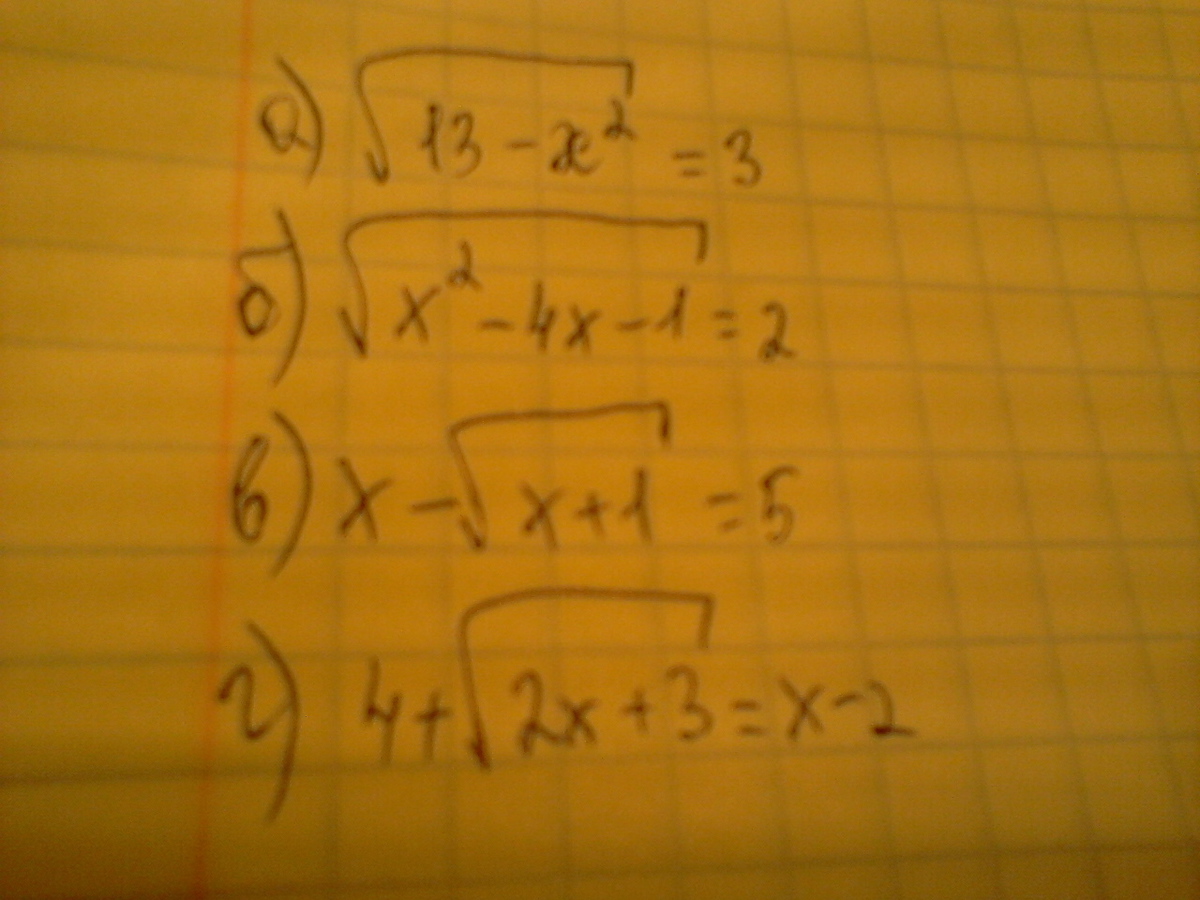 а) √13 - x² = 3
б) √x² - 4x - 1 = 2
в) x - √x + 1 = 5
г) 4 + √2x + 3 = x - 2